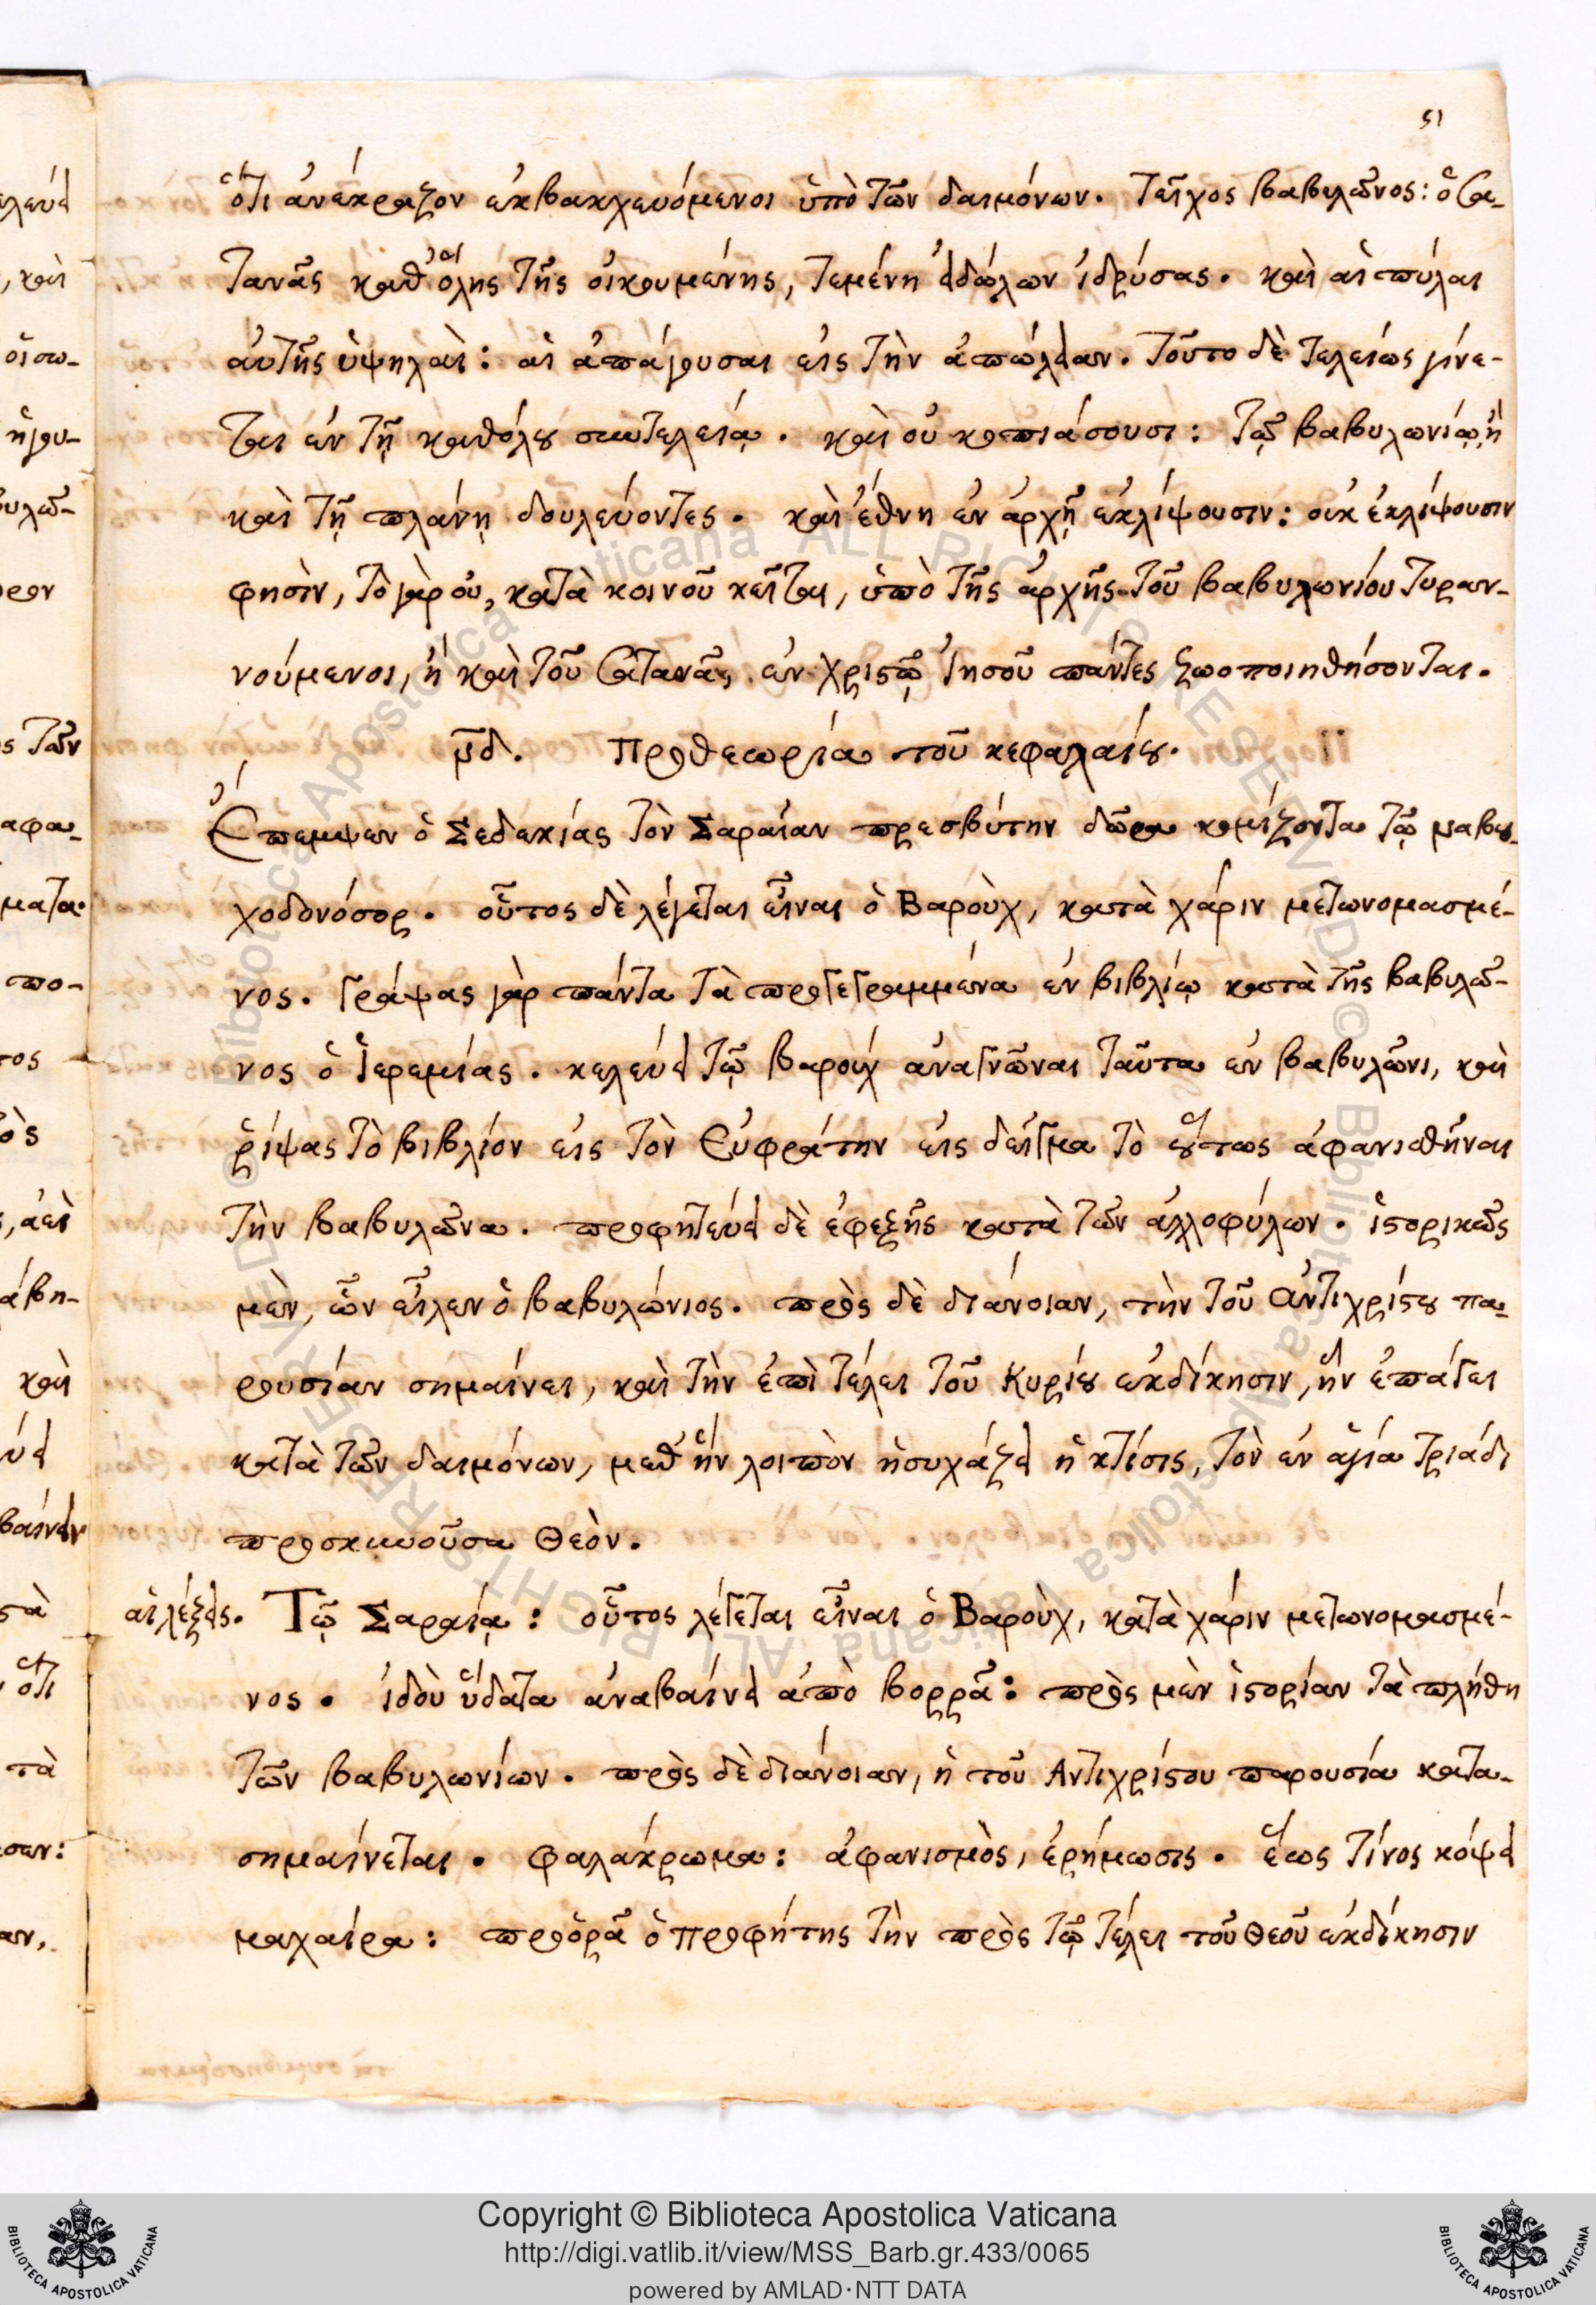 51
ὅτι ἀνέκραζον ἐκβακχευόμενοι ὑπὸ τῶν δαιμόνων. τεῖχος βαβυλῶνος: ὁ σα-
τανᾶς καθ' ὅλης τῆς οἰκουμένης, τεμένη εἰδώλων ἱδρύσας. καὶ αἱ πύλαι
αὐτῆς ὑψηλαὶ: αἱ ἀπάγουσαι εἰς τὴν ἀπώλειαν. τοῦτο δὲ τελείως γίνε-
ται ἐν τῇ καθόλου συντελείᾳ. καὶ οὐ κοπιάσουσι: τῷ βαβυλωνίῳ, ἢ
καὶ τῇ πλάνῃ δουλεύοντες. καὶ ἔθνη ἐν ἀρχῇ ἐκλίψουσιν: οὐκ ἐκλίψουσιν
φησὶν, τὸ γὰρ οὐ, κατὰ κοινοῦ κεῖται, ὑπὸ τῆς ἀρχῆς τοῦ βαβυλωνίου τυραν-
νούμενοι, ἢ καὶ τοῦ σατανᾶ, ἐν χριστῷ Ἰησοῦ πάντες ζωοποιηθήσονται.
μδ. Προθεωρία τοῦ κεφαλαίου.
Ἔπεμψεν ὁ Σεδεκίας τὸν Σαραίαν πρεσβύτην δῶρα κομίζοντα τῷ ναβου-
χοδονόσορ. οὗτος δὲ λέγεται εἶναι ὁ Βαροὺχ, κατὰ χάριν μετωνομασμέ-
νος. γράψας γὰρ πάντα τὰ προγεγραμμένα ἐν βιβλίῳ κατὰ τῆς βαβυλῶ-
νος ὁ Ἱερεμίας. κελεύει τῷ βαροὺχ ἀναγνῶναι ταῦτα ἐν βαβυλῶνι, καὶ
ῥίψας τὸ βιβλίον εἰς τὸν Εὐφράτην εἰς δεῖγμα τὸ οὕτως ἀφανισθῆναι
τὴν βαβυλῶνα. προφητεύει δὲ ἐφεξῆς κατὰ τῶν ἀλλοφύλων. ἱστορικῶς
μὲν, ὧν εἷλεν ὁ βαβυλώνιος. πρὸς δὲ διάνοιαν, τὴν τοῦ Ἀντιχρίστου πα-
ρουσίαν σημαίνει, καὶ τὴν ἐπὶ τέλει τοῦ Κυρίου ἐκδίκησιν, ἣν ἐπάγει
κατὰ τῶν δαιμόνων, μεθ' ἣν λοιπὸν ἡσυχάζει ἡ κτίσις, τὸν ἐν ἁγίᾳ τριάδι
προσκυνοῦσα Θεὸν.
αἱ λέξεις. Τῷ Σαραίᾳ: οὗτος λέγεται εἶναι ὁ Βαροὺχ, κατὰ χάριν μετωνομασμέ-
νος. ἰδοὺ ὕδατα ἀναβαίνει ἀπὸ βορρᾶ: πρὸς μὲν ἱστορίαν τὰ πλήθη
τῶν βαβυλωνίων. πρὸς δὲ διάνοιαν, ἡ τοῦ Ἀντιχρίστου παρουσία κατα-
σημαίνεται. φαλάκρωμα: ἀφανισμὸς, ἐρήμωσις. ἕως τίνος κόψει
μαχαίρα: προορᾷ ὁ προφήτης τὴν πρὸς τῷ τέλει τοῦ Θεοῦ ἐκδίκησιν
Copyright © Biblioteca Apostolica Vaticana
http://digi.vatlib.it/view/MSS_Barb.gr.433/0065
powered by AMLAD·NTT DATA